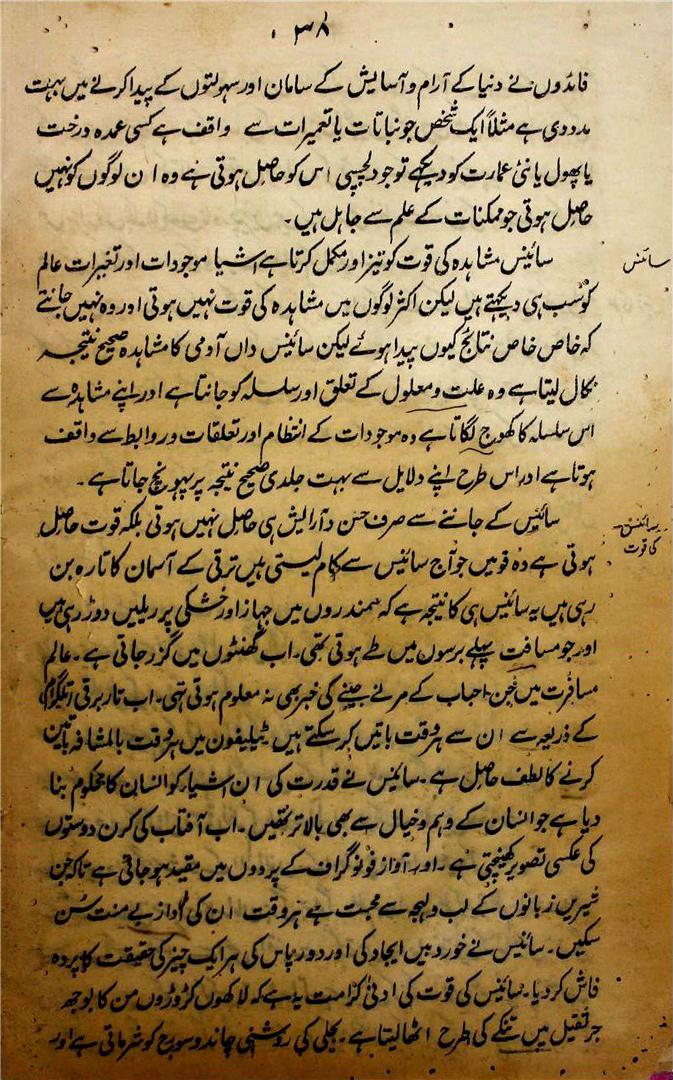 ۳۸
فائدوں نے دنیا کے آرام و آسایش کے سامان اور سہولتوں کے پیدا کرنے میں بہت
مدد دی ہے مثلاً ایک شخص جو نباتات یا تعمیرات سے واقف ہے کسی عمدہ درخت
یا پھول یا نئی عمارت کو دیکھے تو جو دلچسپی اس کو حاصل ہوتی ہے وہ ان لوگوں کو نہیں
حاصل ہوتی جو ممکنات کے علم سے جاہل ہیں۔
سائنس
سائینس مشاہدہ کی قوت کو تیز اور مکمل کرتا ہے اشیا موجودات اور تغیرات عالم
کو سب ہی دیکھتے ہیں لیکن اکثر لوگوں میں مشاہدہ کی قوت نہیں ہوتی اور وہ نہیں جانتے
کہ خاص خاص نتائج کیوں پیدا ہوئے لیکن سائینس داں آدمی کا مشاہدہ صحیح نتیجہ
نکال لیتا ہے وہ علت و معلول کے تعلق اور سلسلہ کو جانتا ہے اور اپنے مشاہدہ سے
اس سلسلہ کا کھوج لگاتا ہے وہ موجودات کے انتظام اور تعلقات و روابط سے واقف
ہوتا ہے اور اس طرح اپنے دلایل سے بہت جلدی صحیح نتیجہ پر پہونچ جاتا ہے۔
سائنس
کی قوت
سائنس کے جاننے سے صرف حسن و آرایش ہی حاصل نہیں ہوتی بلکہ قوت حاصل
ہوتی ہے وہ قومیں جو آج سائینس سے کام لیتی ہیں ترقی کے آسمان کا تارہ بن
رہی ہیں یہ سائنس ہی کا نتیجہ ہے کہ سمندروں میں جہاز اور خشکی پر ریلیں دوڑ رہی ہیں
اور جو مسافت پہلے برسوں میں طے ہوتی تھی۔ اب گھنٹوں میں گزر جاتی ہے۔ عالم
مسافرت میں جن احباب کے مرنے جینے کی خبر بھی نہ معلوم ہوتی تھی۔ اب تار برقی (ٹیلگرام)
کے ذریعہ سے ان سے ہر وقت باتیں کر سکتے ہیں ٹیلیفون میں ہر وقت بالمشافہ باتین
کرنے کا لطف حاصل ہے۔ سائینس نے قدرت کی ان اشیاء کو انسان کا محکوم بنا
دیا ہے جو انسان کے وہم و خیال سے بھی بالا تر تھیں۔ اب آفتاب کی کرن دوستوں
کی عکسی تصویر کھینچتی ہے۔ اور آواز فونوگراف کے پردوں میں مقید ہو جاتی ہے تاکہ جن
شیریں زبانوں کے لب و لہجہ سے محبت ہے ہر وقت ان کی آواز بے منت سُن
سکیں۔ سائنس نے خوردبیں ایجاد کی اور دور پاس کی ہر ایک چیز کی حقیقت کا پردہ
فاش کر دیا۔ سائینس کی قوت کی ادنیٰ کرامت یہ ہے کہ لاکھوں کڑوڑوں من کا بوجھ
جر ثقیل میں تنکے کی طرح اٹھا لیتا ہے۔ بجلی کی روشنی چاند و سورج کو شرماتی ہے اور